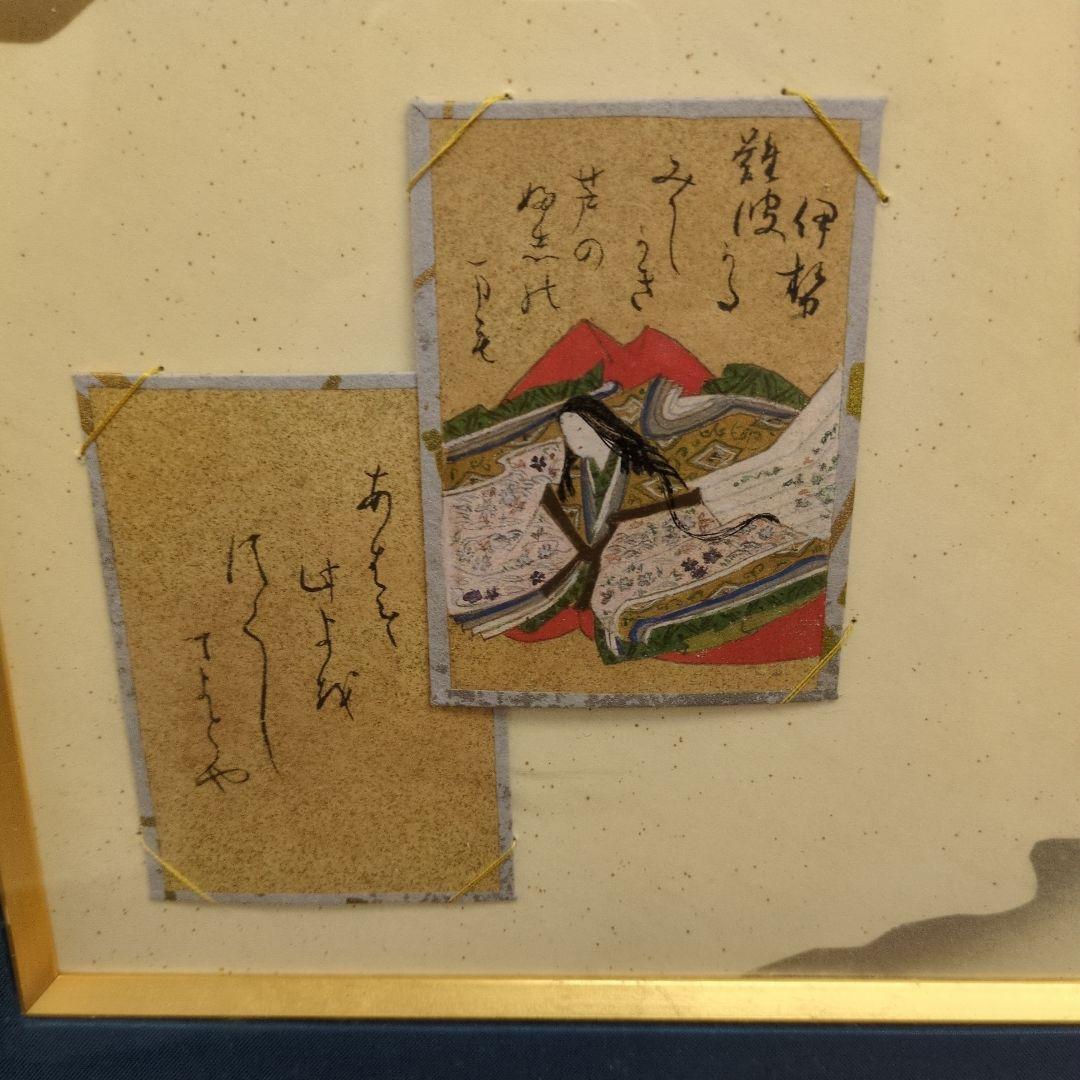 伊勢
難波かた
みしかき
芦の
ふしの
まも
あはて
此よを
すくし
てよとや